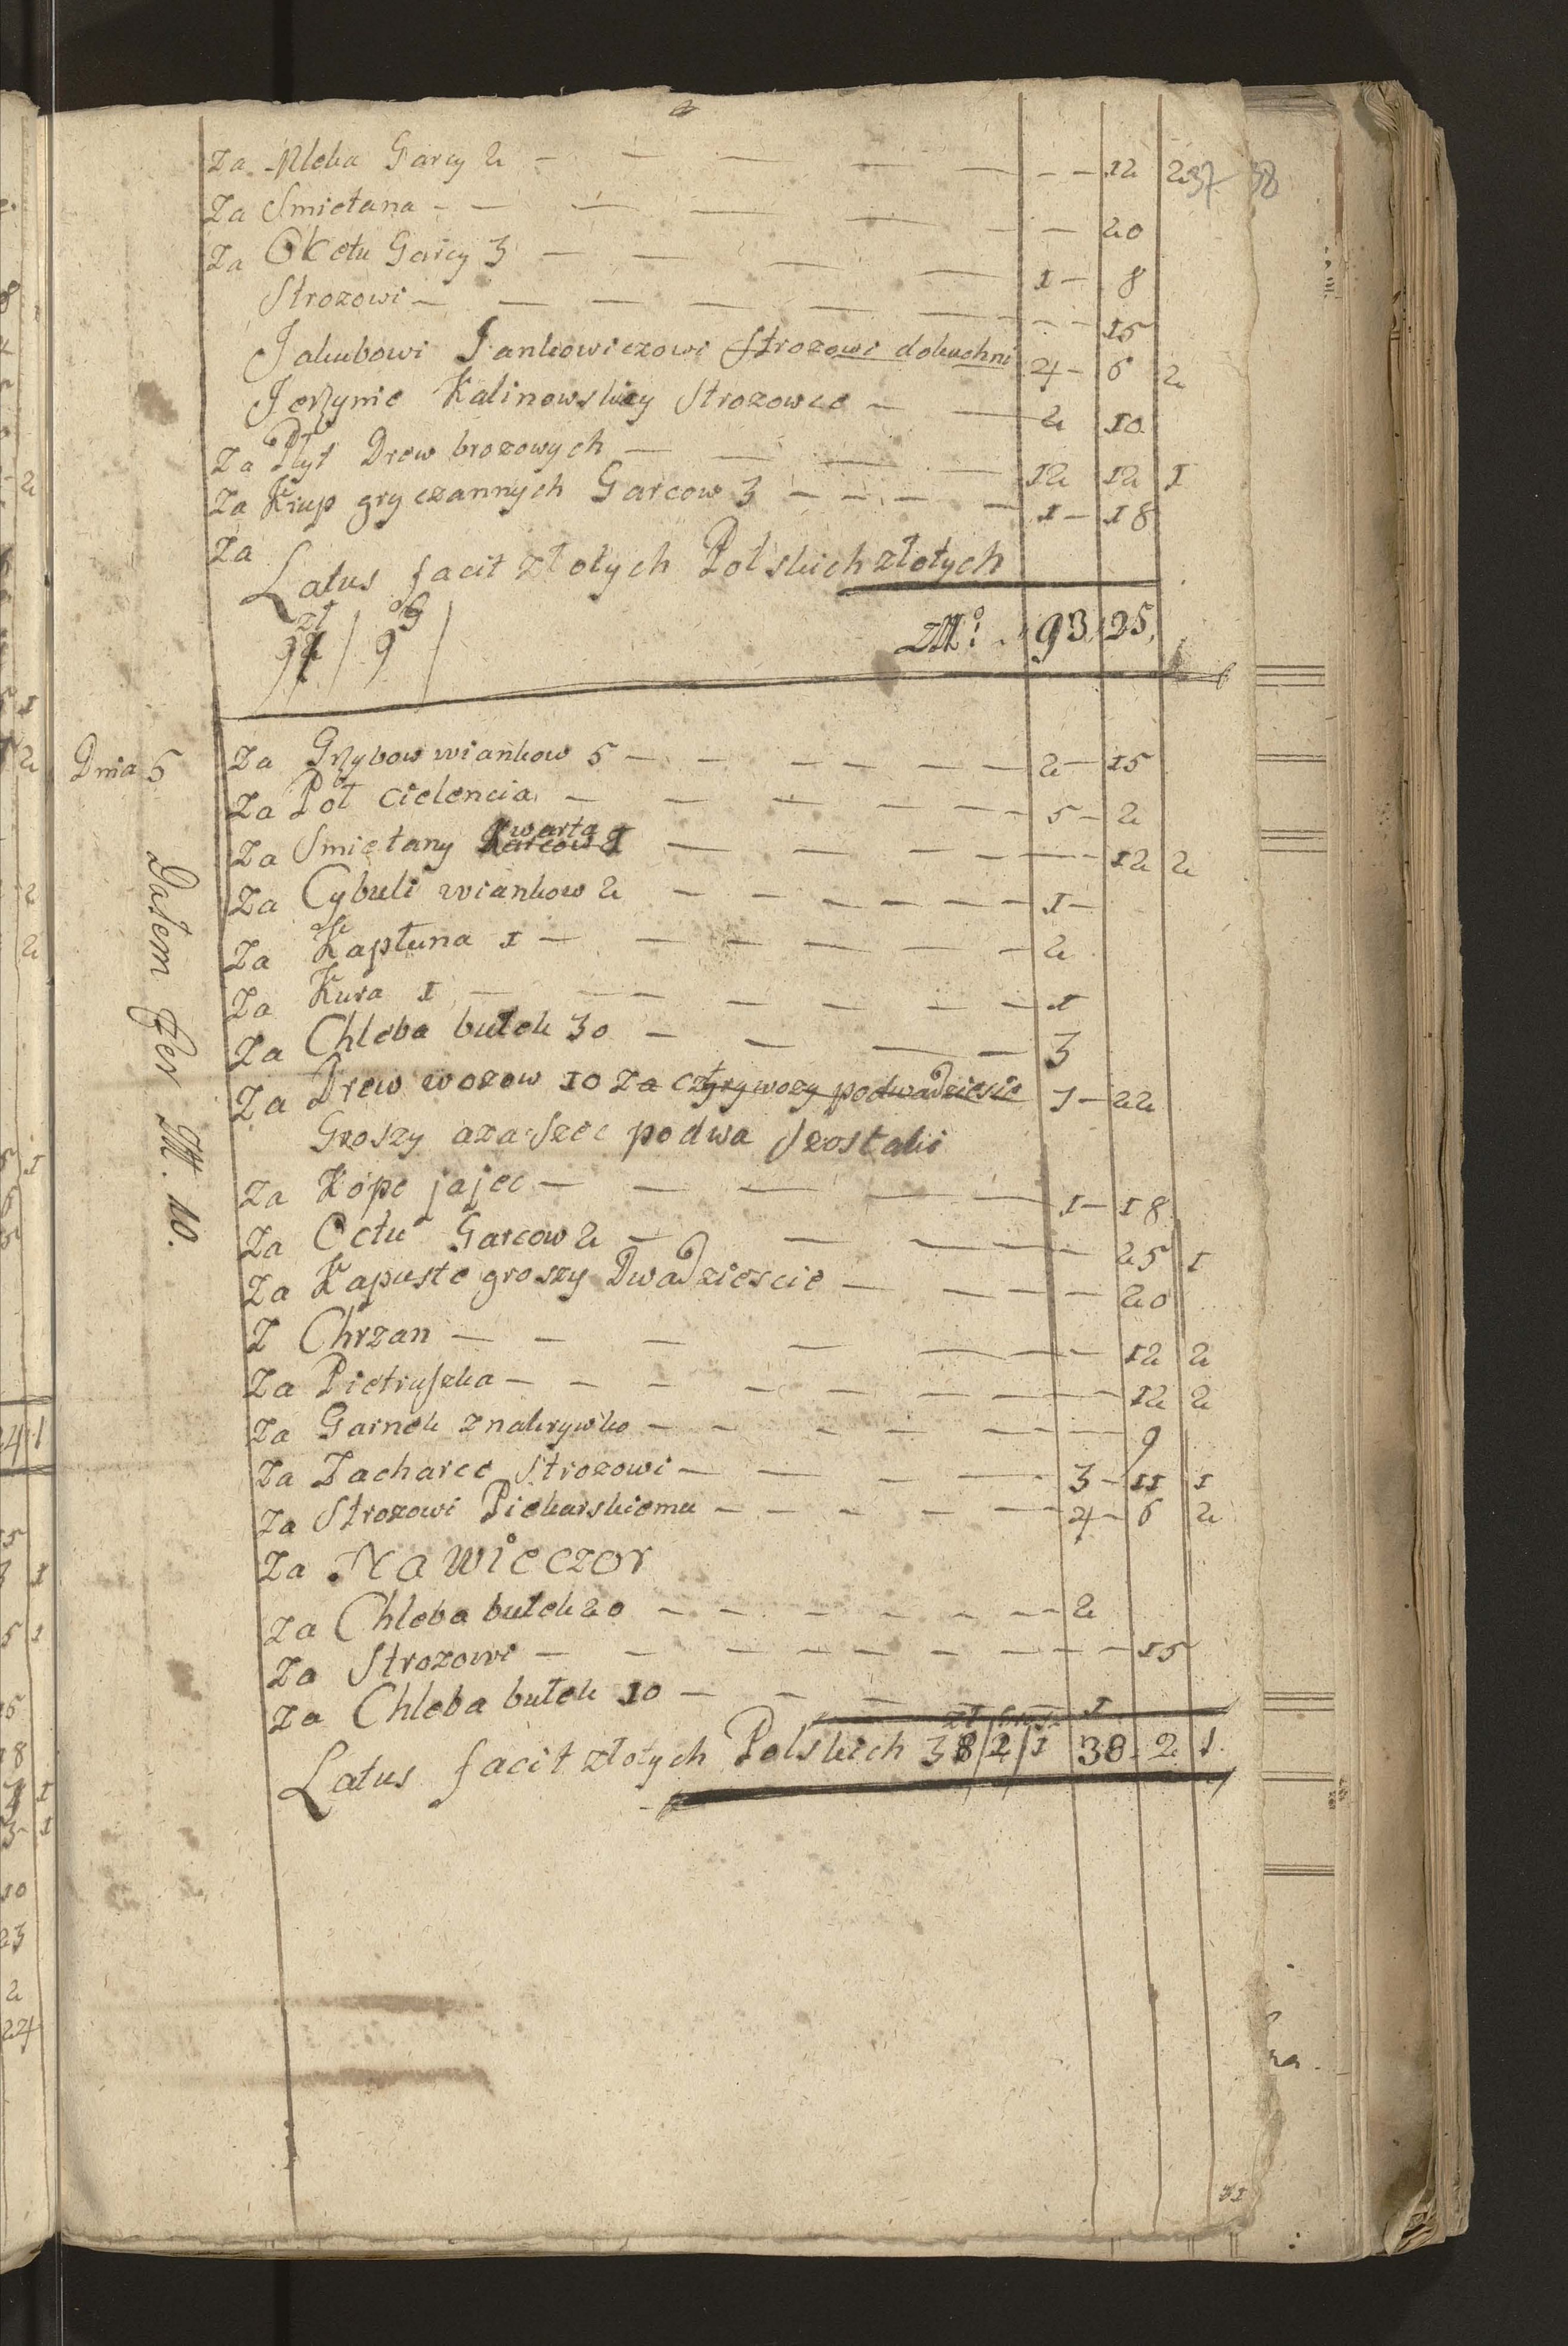 Za Mleka Garcy 2 - - - - - - 12 2 37 38
Za Smietana - - - - - - 20
Za Octu Garcy 3 - - - - 1 - 8
Strozowi - - - - - - 15
Jakubowi Jankowiczowi Strozowi dokuchni 4 - 6 2
Jerzynie Kalinowskiey Strozowce - - 2 10
Za Płyt Drew brozowych - - - - 12 12 1
Za Krup gryczannych Garcow 3 - - - - 1 - 18
Za
Latus facit złotych Polskich złotych
zł g
94 / 9 / 93, 25,
Dnia 5 Za Grzybow wiankow 5 - - - - - - 2 - 15
Za Poł cielencia - - - - - 5 - 2
Za Smietany kwarta 1 - - - - - 12 2
Za Cybuli wiankow 2 - - - - - - 1 -
Za Kapłuna 1 - - - - - 2
Za Kura 1 - - - - - - 1
Za Chleba bułek 30 - - - - 3
Za Drew wozow 10 Za cztyry wozy podwadziescie 7 - 22
Groszy aza szec podwa szostaki
Za Kope jajec - - - - 1 - 18
Za Octu Garcow 2 - - - - - 25 1
Za Kapuste groszy Dwadziescie - - - - 20
Z Chrzan - - - - - - - 12 2
Za Pietruszka - - - - - - - - 12 2
Za Garnek znakrywko - - - - - - - 9
Za Zacharce Strozowi - - - - 3 - 11 1
Za Strozowi Piekarskiemu - - - - - 4 - 6 2
Za Na wieczor
Za Chleba bułek 20 - - - - - - - 2
Za Strozowi - - - - - - - - 15
Za Chleba bułek 10 - - - - - 1
Latus facit złotych Polskich 38 / 2 / 1 38 - 2 1
Dałem Per 10.
31